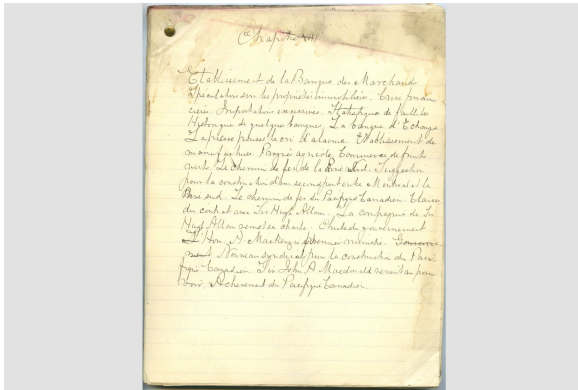 Chapitre
Etablissement de la Banque des Marchands
Spéculation sur les propriétés immobilières. Crise finan
cière. Importations excessives. Statistiques de faillites
Historique de quelques banques. La banque d'Echange
La presse pousse le cri d'alarme. Etablissement de
manufactures. Progrès agricole. Commerce de fruits
verts. Le chemin de fer de la Rive Sud. Suggestion
pour la construction d'un second pont entre Montréal et la
Rive sud. Le chemin de fer du Pacifique Canadien. Clauses
du contrat avec Sir Hugh Allan. La compagnie de Sir
Hugh Allan remet sa charte. Chute du gouvernement
L'Hon. A. Mackenzie premier ministre.
Nouveau syndicat pour la construction du Paci
fique Canadien. Sir John A. Macdonald revient au pou
voir. Achèvement du Pacifique Canadien.